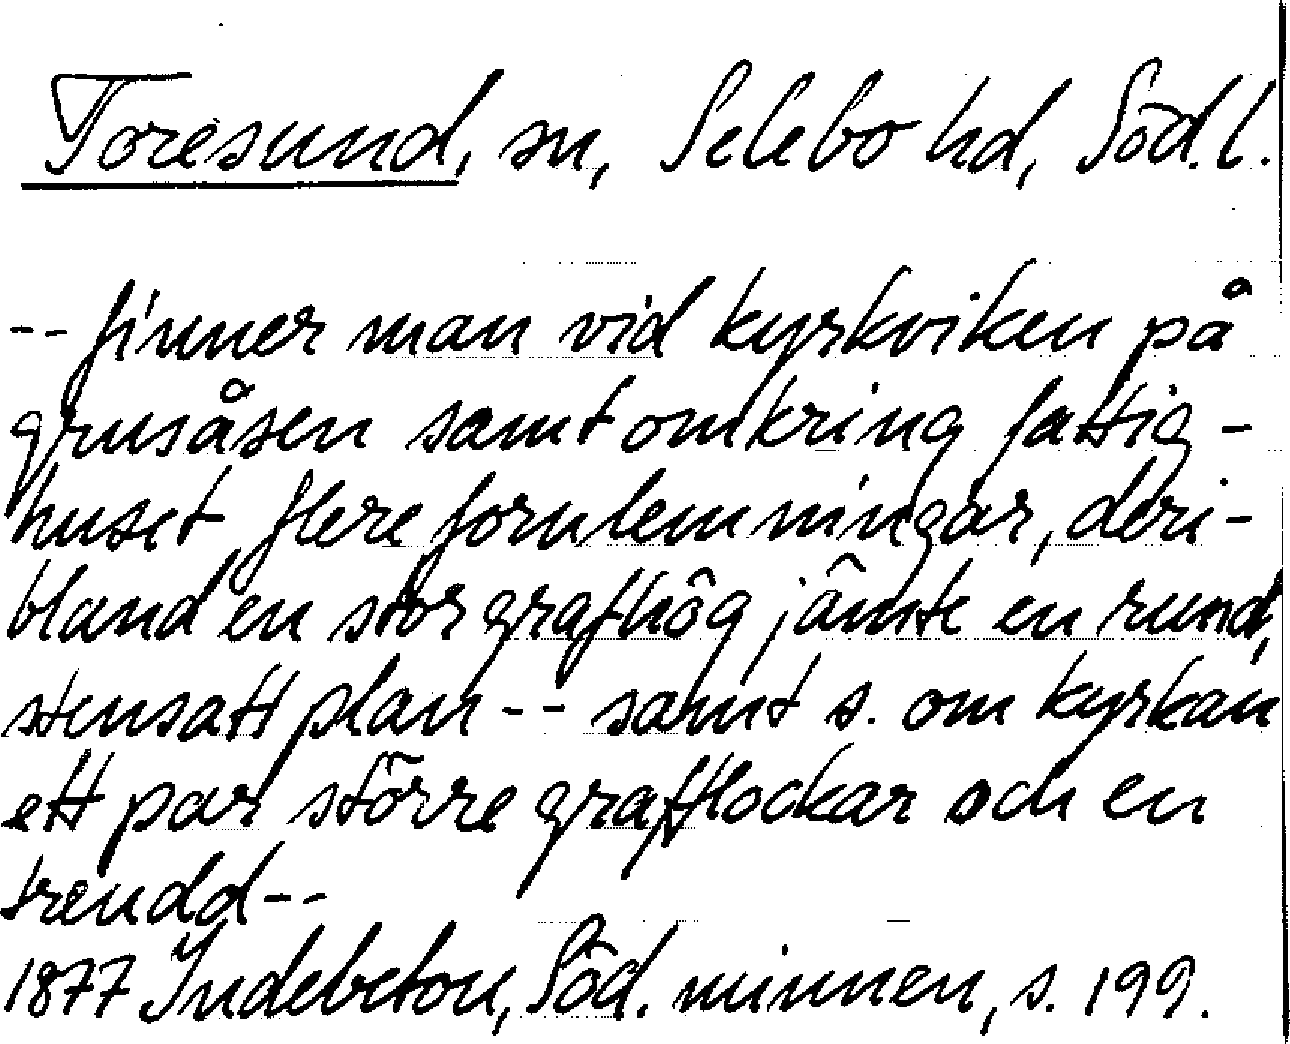 Toresund, sn, Selebo hd, Söd. l.
-- finner man vid kyrkviken på
grusåsen samt omkring fattig-
huset flere fornlemningar, deri-
bland en stor grafhög jämte en rund,
stensatt plan -- samt s. om kyrkan
ett par större grafflockar och en
treudd --
1877 Indebetou, Söd. minnen, s. 199.